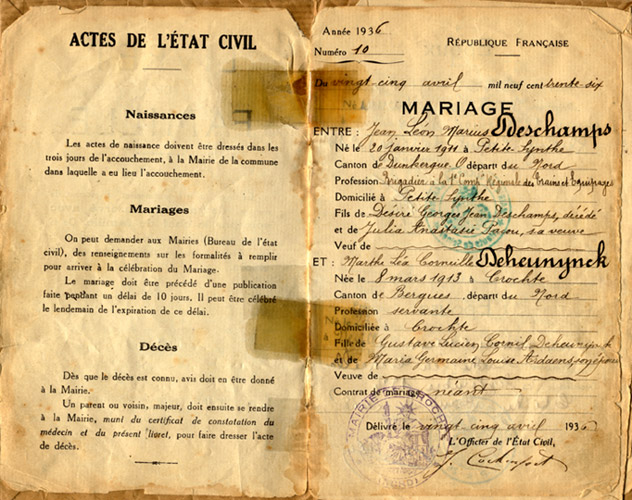 ACTES DE L'ÉTAT CIVIL
Naissances
Les actes de naissance doivent être dressés dans les
trois jours de l'accouchement, à la Mairie de la commune
dans laquelle a eu lieu l'accouchement.
Mariages
On peut demander aux Mairies (Bureau de l'état
civil), des renseignements sur les formalités à remplir
pour arriver à la célébration du Mariage.
Le mariage doit être précédé d'une publication
faite pendant un délai de 10 jours. Il peut être célébré
le lendemain de l'expiration de ce délai.
Décès
Dès que le décès est connu, avis doit en être donné
à la Mairie.
Un parent ou voisin, majeur, doit ensuite se rendre
à la Mairie, muni du certificat de constatation du
médecin et du présent livret, pour faire dresser l'acte
de décès.
Année 1936
Numéro 10
RÉPUBLIQUE FRANÇAISE
Du vingt-cinq avril mil neuf cent trente-six
MARIAGE
ENTRE : Jean Léon Marius Deschamps
Né le 20 janvier 1911 à Petite Synthe
Canton de Dunkerque O départ du Nord
Profession Brigadier à la Régionale des Trains et Equipages
Domicilié à Petite Synthe
Fils de Désiré Georges Jean Deschamps, décédé
et de Julia Anastasie sa veuve
Veuf de
ET : Marthe Léa Corneille Deheunynck
Née le 8 mars 1913 à Crochte
Canton de Bergues, départ du Nord
Profession servante
Domiciliée à Crochte
Fille de Gustave Lucien Cornil Deheunynck
et de Maria Germaine Louise Ardaens, son épouse
Veuve de
Contrat de mariage néant
MAIRIE DE CROCHTE
Délivré le vingt cinq avril 1936
L'Officier de l'État Civil,